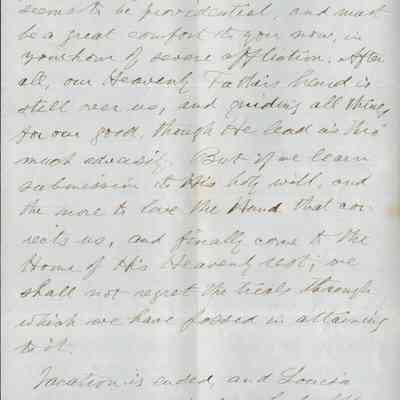 seems to be providential, and must
be a great comfort to you now, in
your hour of severe affliction. After
all, our Heavenly Father's hand is
still over us, and guiding all things
for our good, though He lead us thro'
much adversity. But if we learn
submission to His holy will, and
the more to love the Hand that cor-
rects us, and finally come to the
Home of His Heavenly rest; we
shall not regret the trials through
which we have passed in attaining
to it.
Vacation is ended, and Louisa